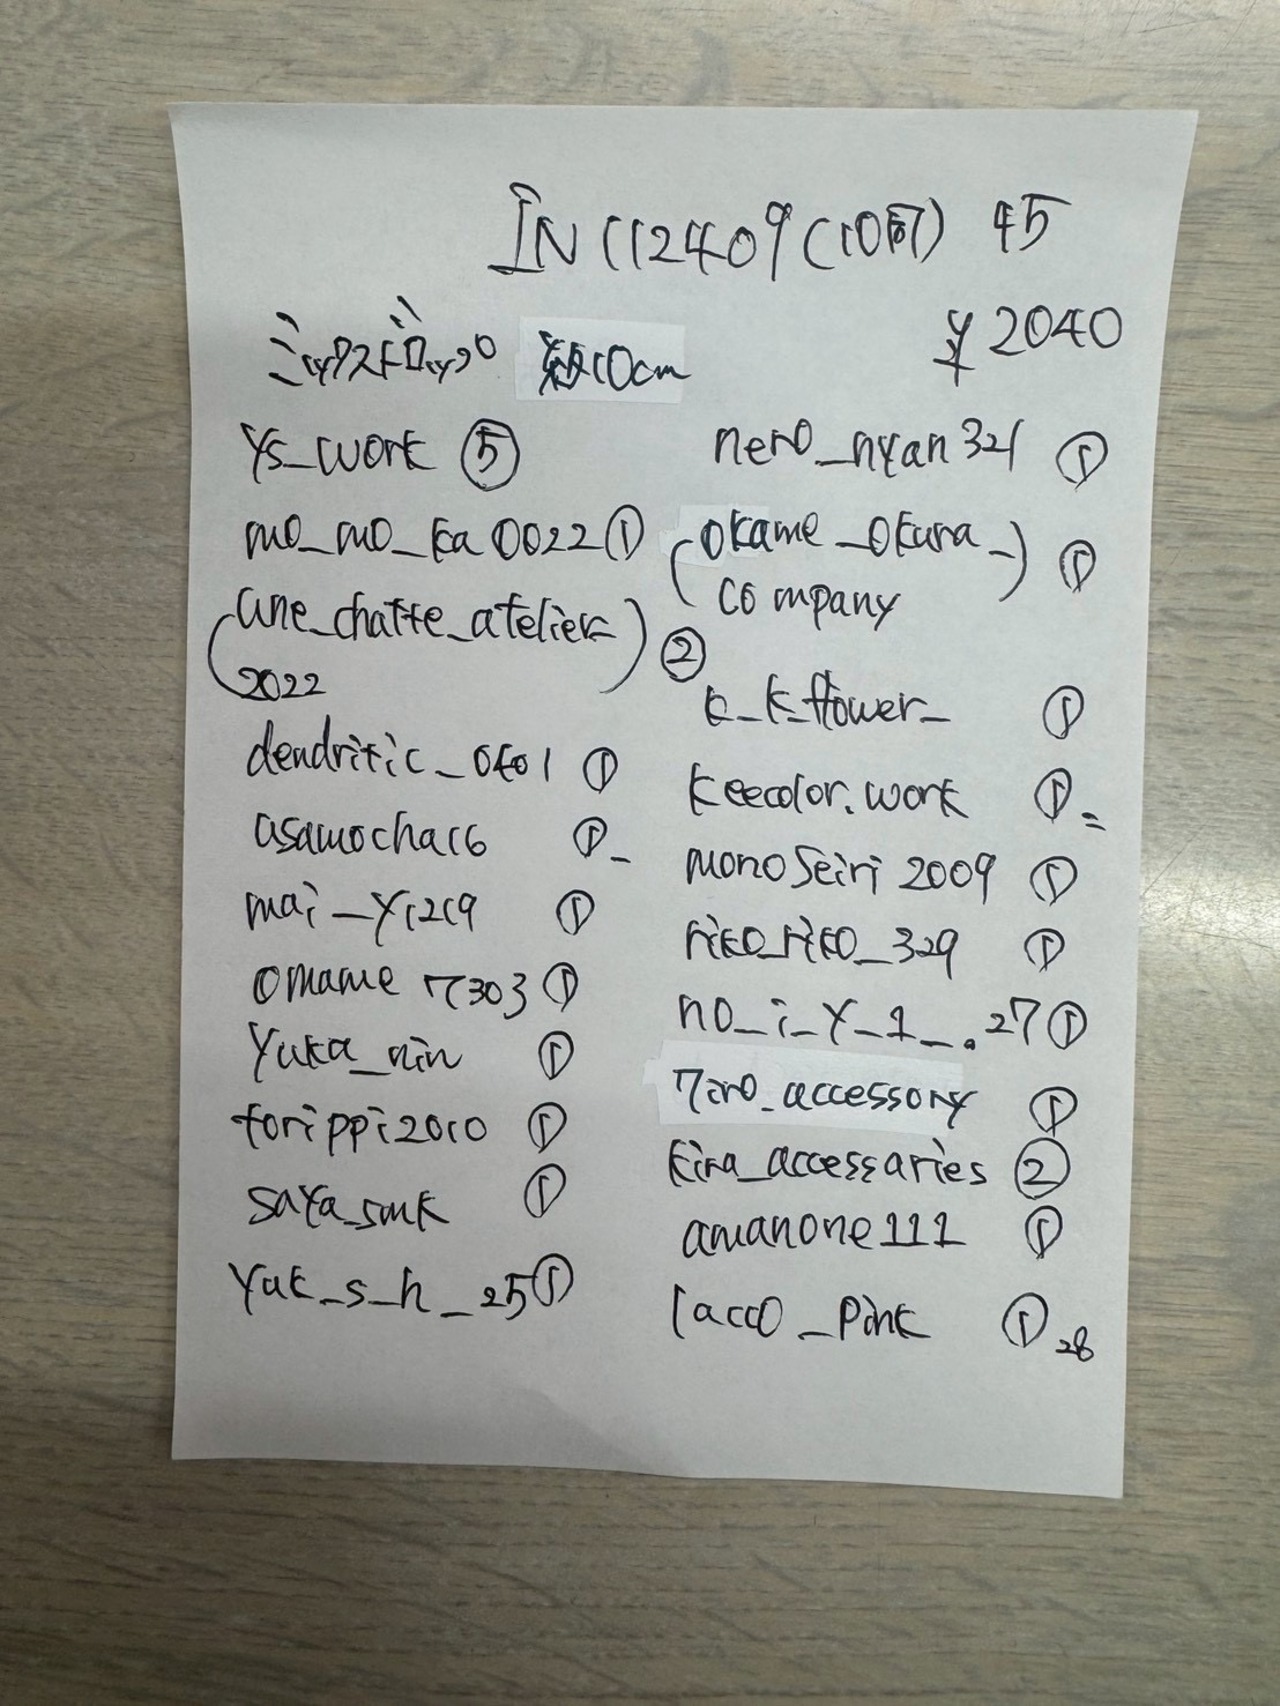 IN112409(10個) 45
¥2040
ミックスドロップ 約10cm
ys_work ⑤
mo_mo_ka0022 ①
(une_chatte_atelier_
2022) ②
dendritic_oto1 ①
asamocha16 ①
mai_y1219 ①
omame7303 ①
yuka_nin ①
torippi2010 ①
saya_smk ①
yuk_s_h_25 ①
nero_nyan321 ①
(okame_okuna_)
company ①
k_k_flower_ ①
keecolor.work ①
monoseiri2009 ①
riko_riko_329 ①
no_i_y_1_.27 ①
7iro_accessory ①
kira_accessaries ②
amanone111 ①
lacco_pink ① 28